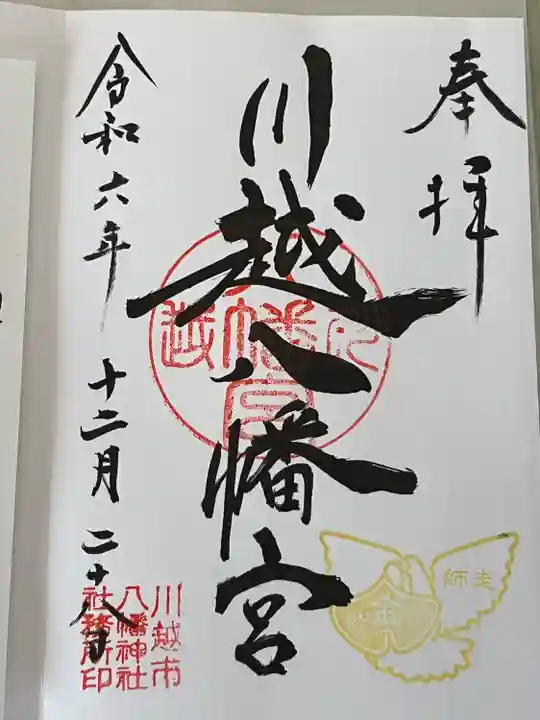 奉拝
川越八幡宮
令和六年 十二月 二十八日
川越市
八幡神社
社務所印
師走